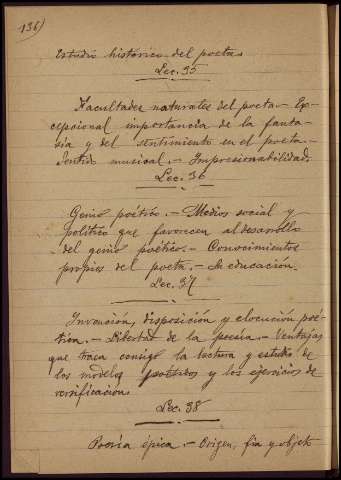 136)
Estudio histórico del poeta.
Lec. 35
Facultades naturales del poeta. — Ex-
cepcional importancia de la fanta-
sía y del sentimiento en el poeta. —
Sentido musical. — Impresionabilidad.
Lec. 36
Genio poético. — Medios social y
político que favorecen al desarrollo
del genio poético. — Conocimientos
propios del poeta. — Su educación.
Lec. 37
Invención, disposición y elocución poé-
tica. — Libertad de la poesía. — Ventajas
que traca consigo la lectura y estudio de
los modelos poéticos y los ejercicios de
versificación.
Lec. 38
Poesía épica. — Origen, fin y objeto